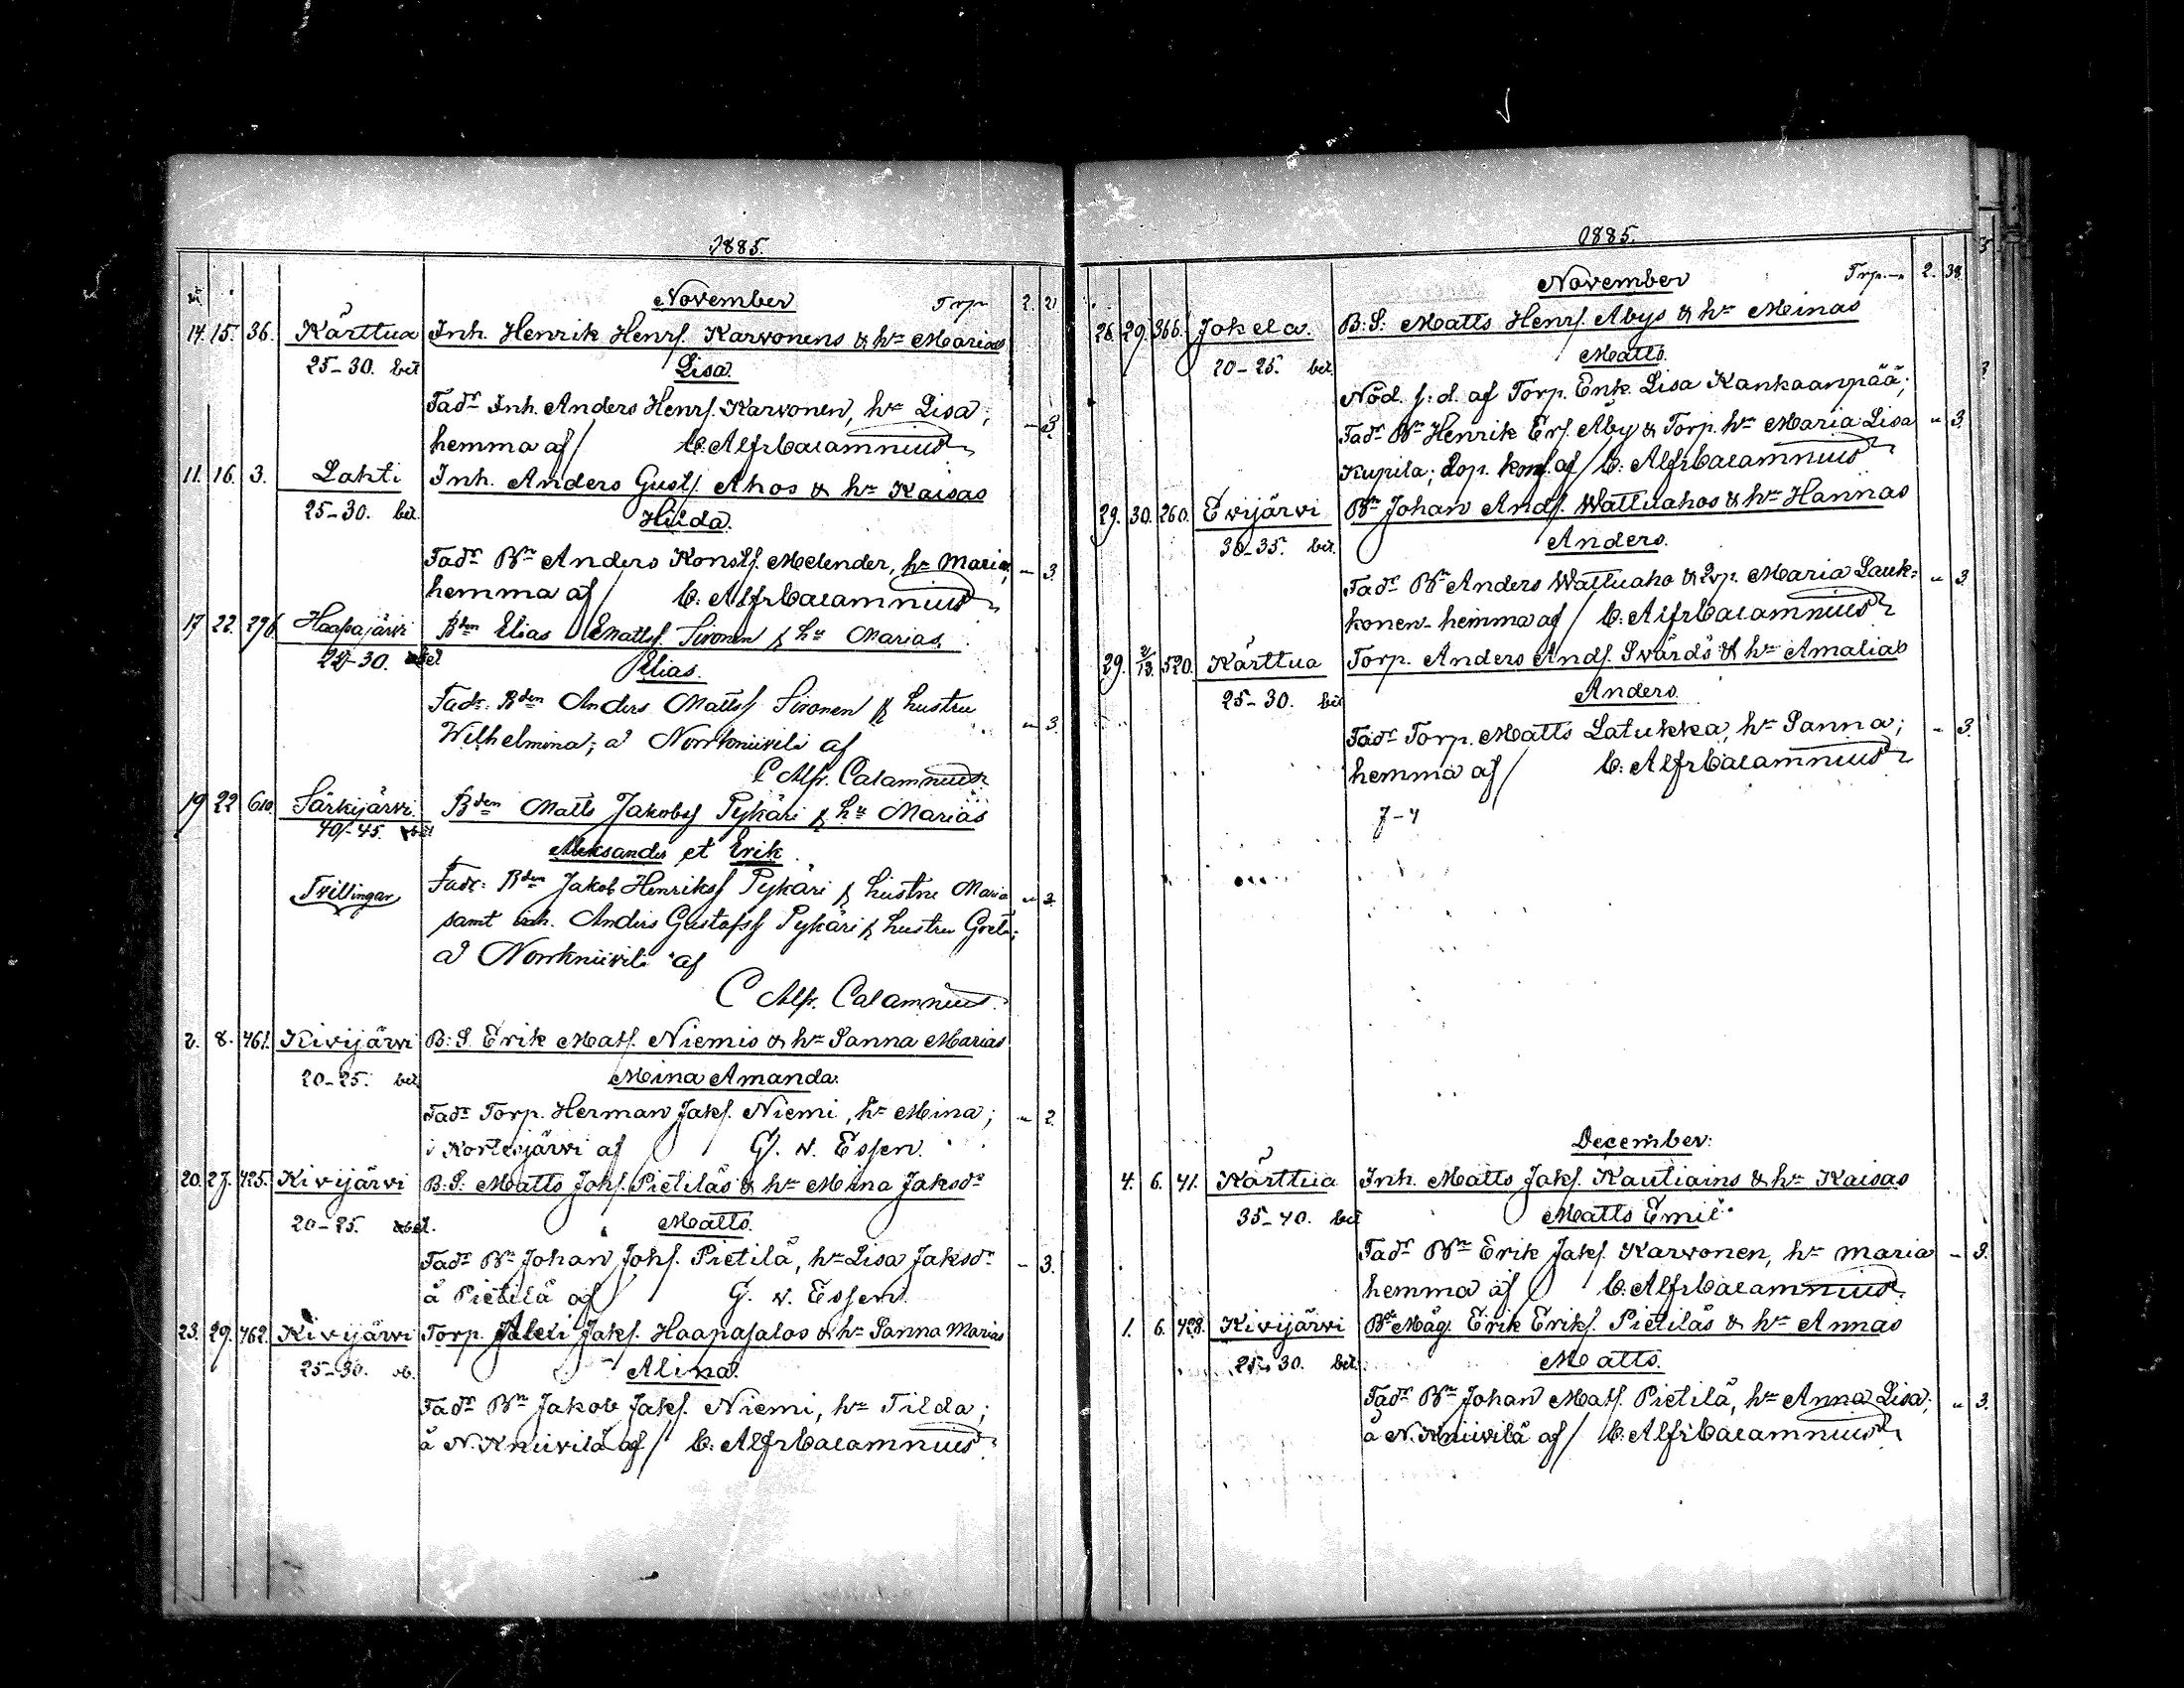 1885.
November Trp. 2. 21
14. 15. 36. Kärttua Inh. Henrik Henrs. Karvonens & hu Marias
25-30. bet Lisa.
Fadr Inh. Anders Henrs. Karvonen, hu Lisa; " 3.
hemma af / C. Alfr Calamnius
11. 16. 3. Lahti Inh. Anders Gusts. Ahos & hu Kaisas
25-30. bet. Hilda.
Fadr Bn Anders Konsts. Melender, hu Maria, " 3.
hemma af / C. Alfr Calamnius
17 22. 296 Haapajärvi Bden Elias Mattss. Sironen & hu Marias.
30. Elias.
Fadr: Bden Anders Mattss Sironen & hustru " 3.
Wilhelmina; å Norrkniivilä af
C Alfr. Calamnius
19 22 610. Särkijärvi. Bden Matts Jakobss Pykäri & hu Marias
40-45. Aleksander et Erik
Tvillingar Fadr: Bden Jakob Henrikss Pykäri & hustru Maria " 3.
samt inh. Anders Gustafss Pykäri & hustru Greta;
å Norrkniivilä af
C Alfr. Calamnius
2. 8. 461. Kivijärvi B:S. Erik Mats. Niemis & hu Sanna Marias
20-25. bet Mina Amanda.
Fadr Torp. Herman Jaks. Niemi, hu Mina; " 2.
i Kortesjärvi af G. v. Essen.
20. 27. 425. Kivijärvi B:S. Matts Johs. Pietiläs & hu Mina Jaksdr
20-25. Matts.
Fadr Bn Johan Johs. Pietilä, hu Lisa Jaksdr " 3.
å Pietilä af G. v. Essen.
23. 29. 462. Kivijärvi Torp. Jaks. Haapasalos & hu Sanna Marias
25-30. ob. Alina.
Fadr Bn Jakob Jaks. Niemi, hu Tilda;
å N. Kniivilä af / C. Alfr Calamnius
1885.
November Trp. " 2. 38.
26. 29. 366. Jokela. B:S: Matts Henrs. Abys & hu Minas
20-25. bet. Matts.
Nöd. s: d. af Torp. Enk. Lisa Kankaanpää;
Fadr Bn Henrik Ers. Aby & Torp. hu Maria Lisa " 3.
Kupila; Dop. konf. af / C. Alfr Calamnius
29. 30. 260. Evijärvi Bn Johan Ands. Wattuahos & hu Hannas
30-35. bet. Anders.
Fadr Bn Anders Wattuaho & Pig. Maria Lauk= " 3.
konen hemma af / C. Alfr Calamnius
29. 2/12. 520. Kärttua Torp. Anders Ands. Svärds & hu Amalias
25-30. bet Anders.
Fadr Torp. Matts Latukka, hu Sanna; " 3.
hemma af / C. Alfr Calamnius
7-4
December:
4. 6. 41. Kärttua Inh. Matts Jaks. Kautiains & hu Kaisas
35-40. bet Matts Emil.
Fadr Bn Erik Jaks. Karvonen, hu Maria " 3.
hemma af C. Alfr Calamnius
1. 6. 428. Kivijärvi Bn Måg. Erik Eriks. Pietiläs & hu Annas
25-30. bet. Matts.
Fadr Bn Johan Mats. Pietilä, hu Anna Lisa; " 3.
å N. Kniivilä af / C. Alfr Calamnius